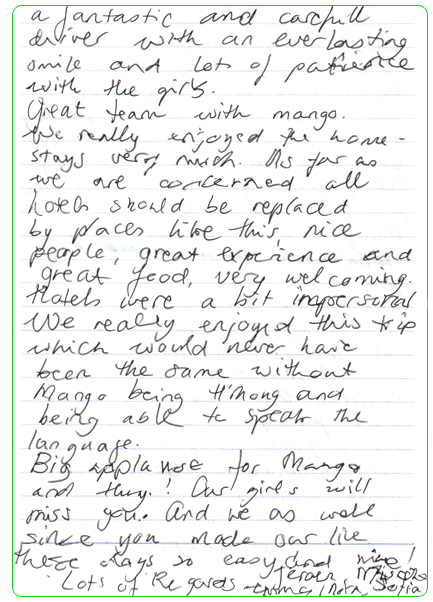 a fantastic and carefull
driver with an everlasting
smile and lots of patience
with the girls.
Great team with mango.
We really enjoyed the home-
stays very much. As far as
we are concerned all
hotels should be replaced
by places like this, nice
people, great experience and
great food, very welcoming.
Hotels were a bit impersonal
We really enjoyed this trip
which would never have
been the same without
Mango being H'mong and
being able to speak the
language.
Big applause for Mango
and thuy! Our girls will
miss you. And we as well
since you made our live
these days so easy and nice!
Lots of Regards Jeroen Emma, Nora, Sofia